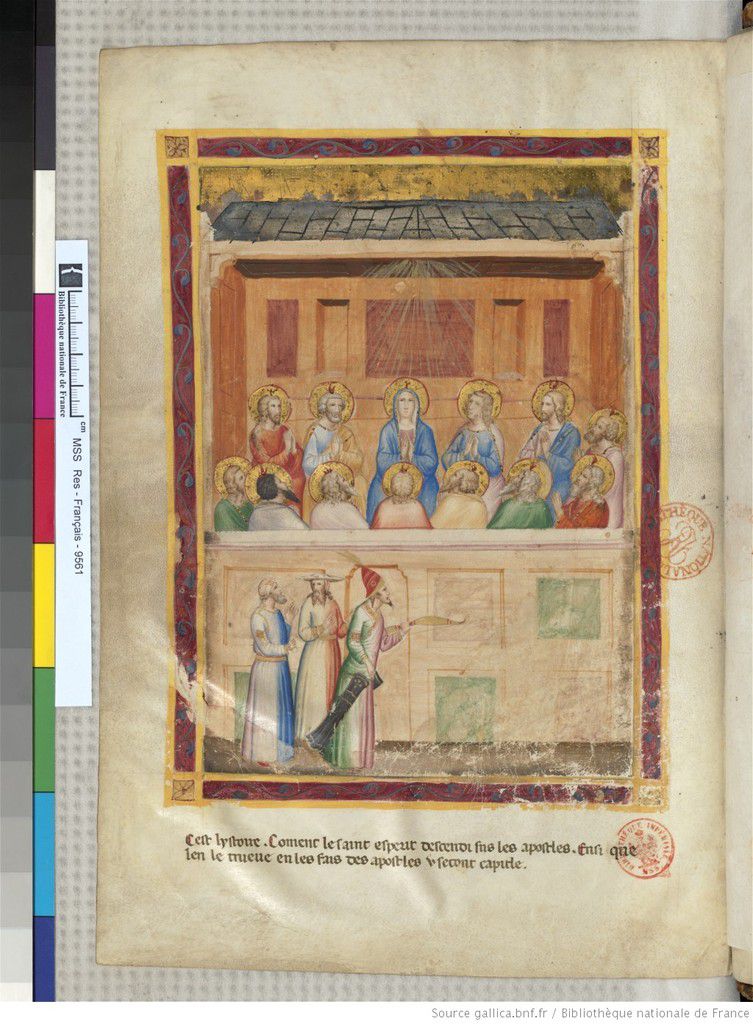 Bibliothèque nationale de France
cm
MSS Res - Français - 9561
Cest lystoire. Coment le saint esperit descendi sus les apostles. Ensi que
len le trueue en les fais des apostles v second capitle.
Source gallica.bnf.fr / Bibliothèque nationale de France